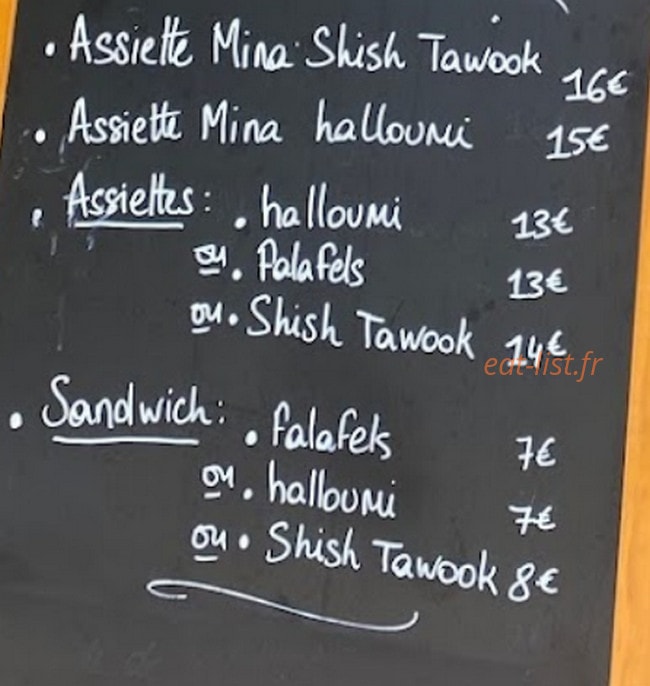 • Assiette Mina Shish Tawook 16€
• Assiette Mina halloumi 15€
• Assiettes : • halloumi 13€
ou • falafels 13€
ou • Shish Tawook 14€
eat-list.fr
• Sandwich : • falafels 7€
ou • halloumi 7€
ou • Shish Tawook 8€